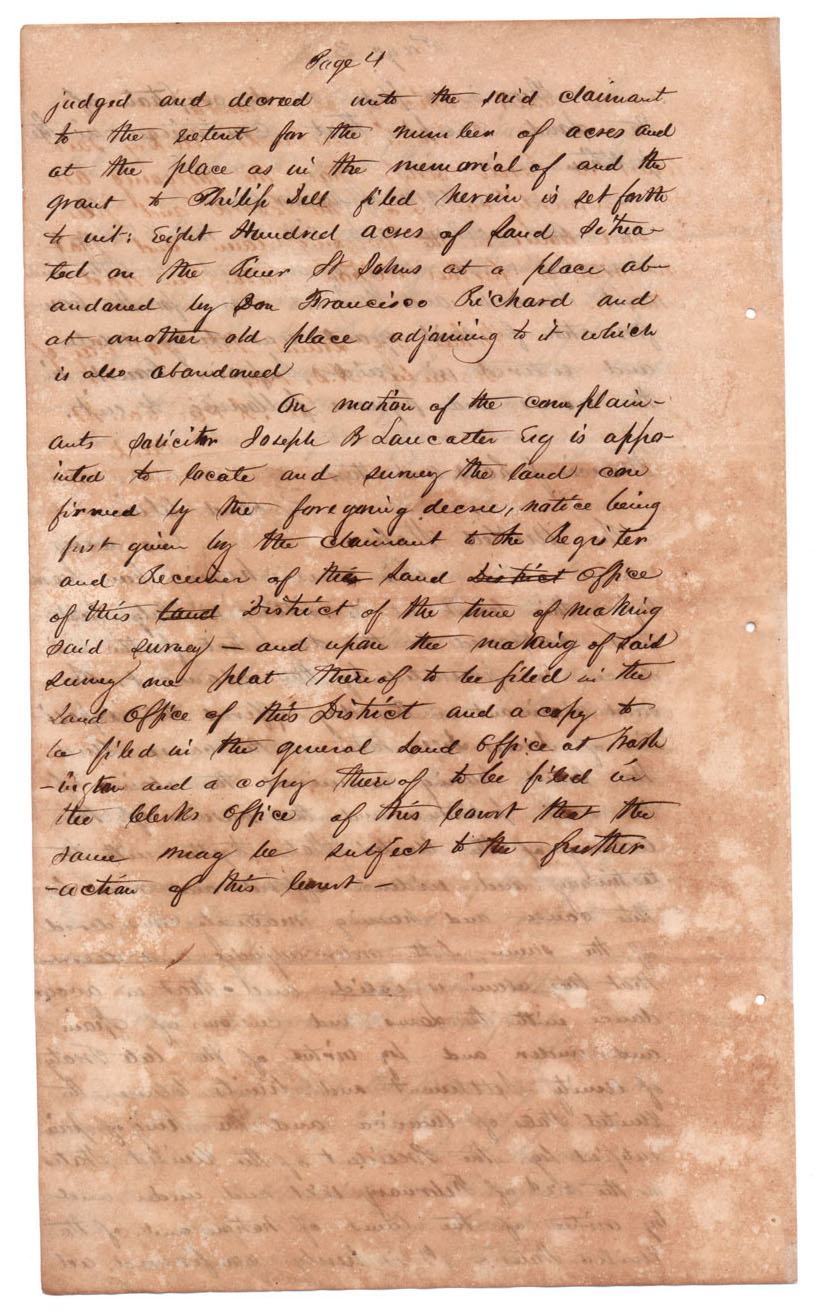 Page 4
judged and decreed unto the said claimant
to the extent for the number of acres and
at the place as in the memorial of and the
grant to Philip Dell filed herein is set forth
to wit: Eight Hundred acres of Land Situa-
ted on the River St Johns at a place ab-
andoned by Don Francisco Richard and
at another old place adjoining to it which
is also abandoned
On motion of the complain-
ants Solicitor Joseph B Lancaster Esq is appo-
inted to locate and survey the land con
firmed by the foregoing decree, notice being
first given by the claimant to the Register
and Receiver of this Land District Office
of this land District of the time of making
said survey — and upon the making of said
survey one plat thereof to be filed in the
Land Office of this District and a copy to
be filed in the general Land Office at Wash
-ington and a copy thereof to be filed in
the Clerks Office of this Court that the
same may be subject to the further
-action of this Court —